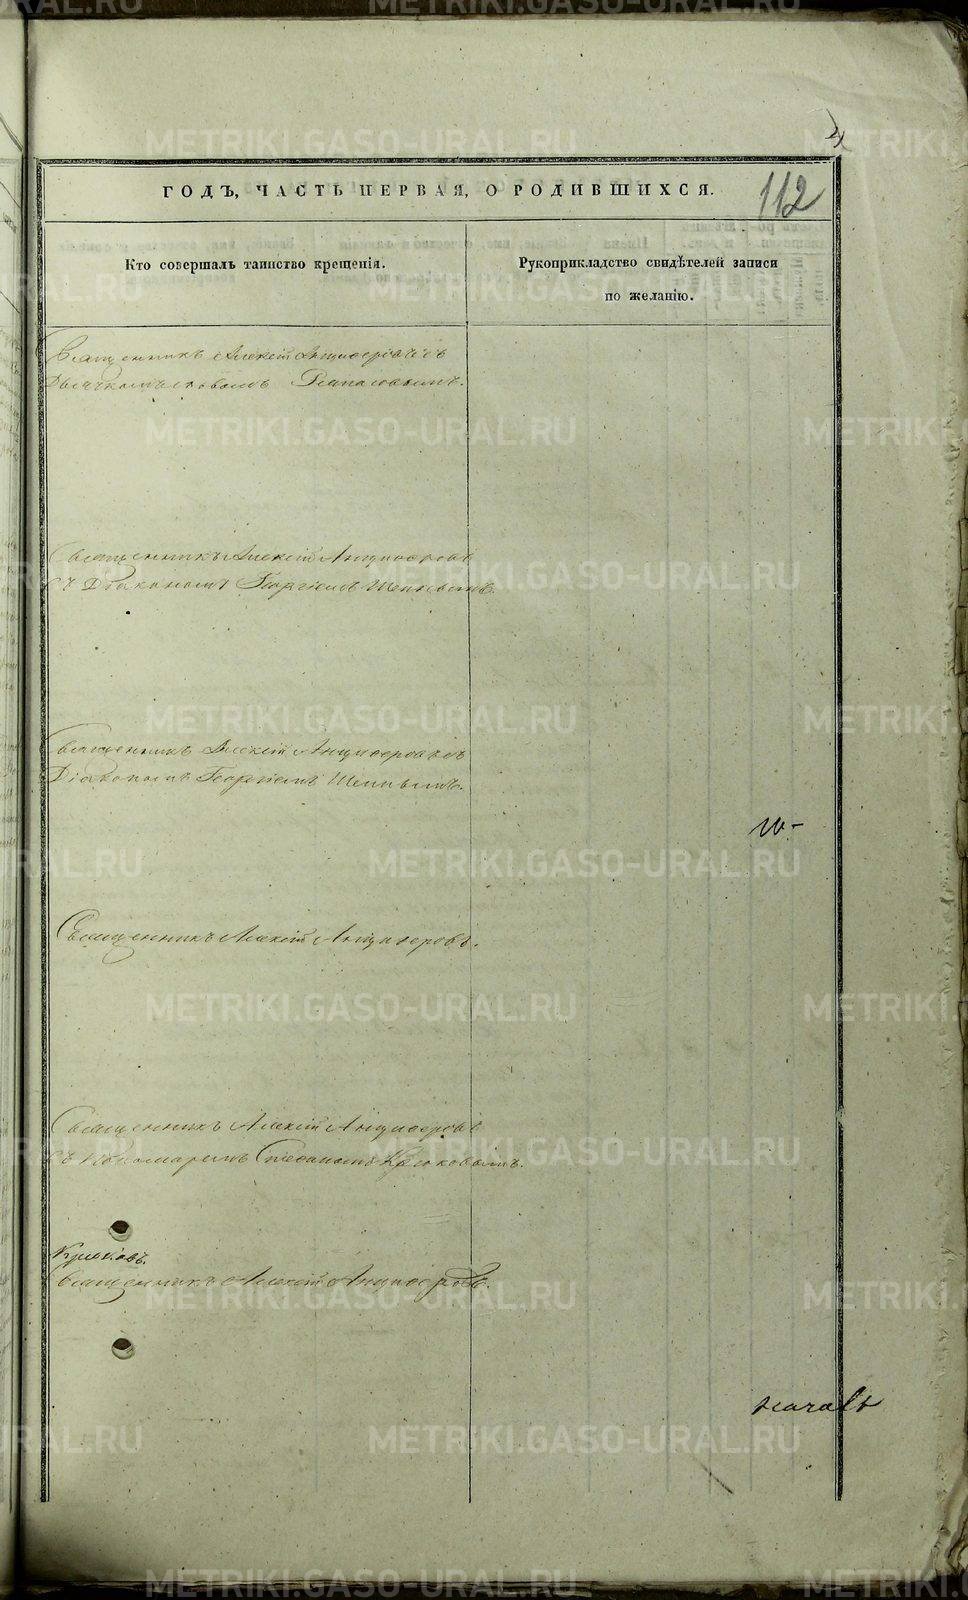 METRIKI.GASO-URAL.RU
112
ГОДЪ, ЧАСТЬ ПЕРВАЯ, О РОДИВШИХСЯ.
Кто совершалъ таинство крещенія.
Рукоприкладство свидѣтелей записи
по желанію.
Священникъ Алексій Анциферовъ съ
Священникъ Алексій Анциферовъ
съ Діакономъ Георгіемъ
Священникъ Алексій Анциферовъ съ
Діакономъ Георгіемъ
Священникъ Алексій Анциферовъ.
Священникъ Алексій Анциферовъ
съ Пономаремъ Стефаномъ Крюковымъ.
Крюковъ.
Священникъ Алексій Анциферовъ.